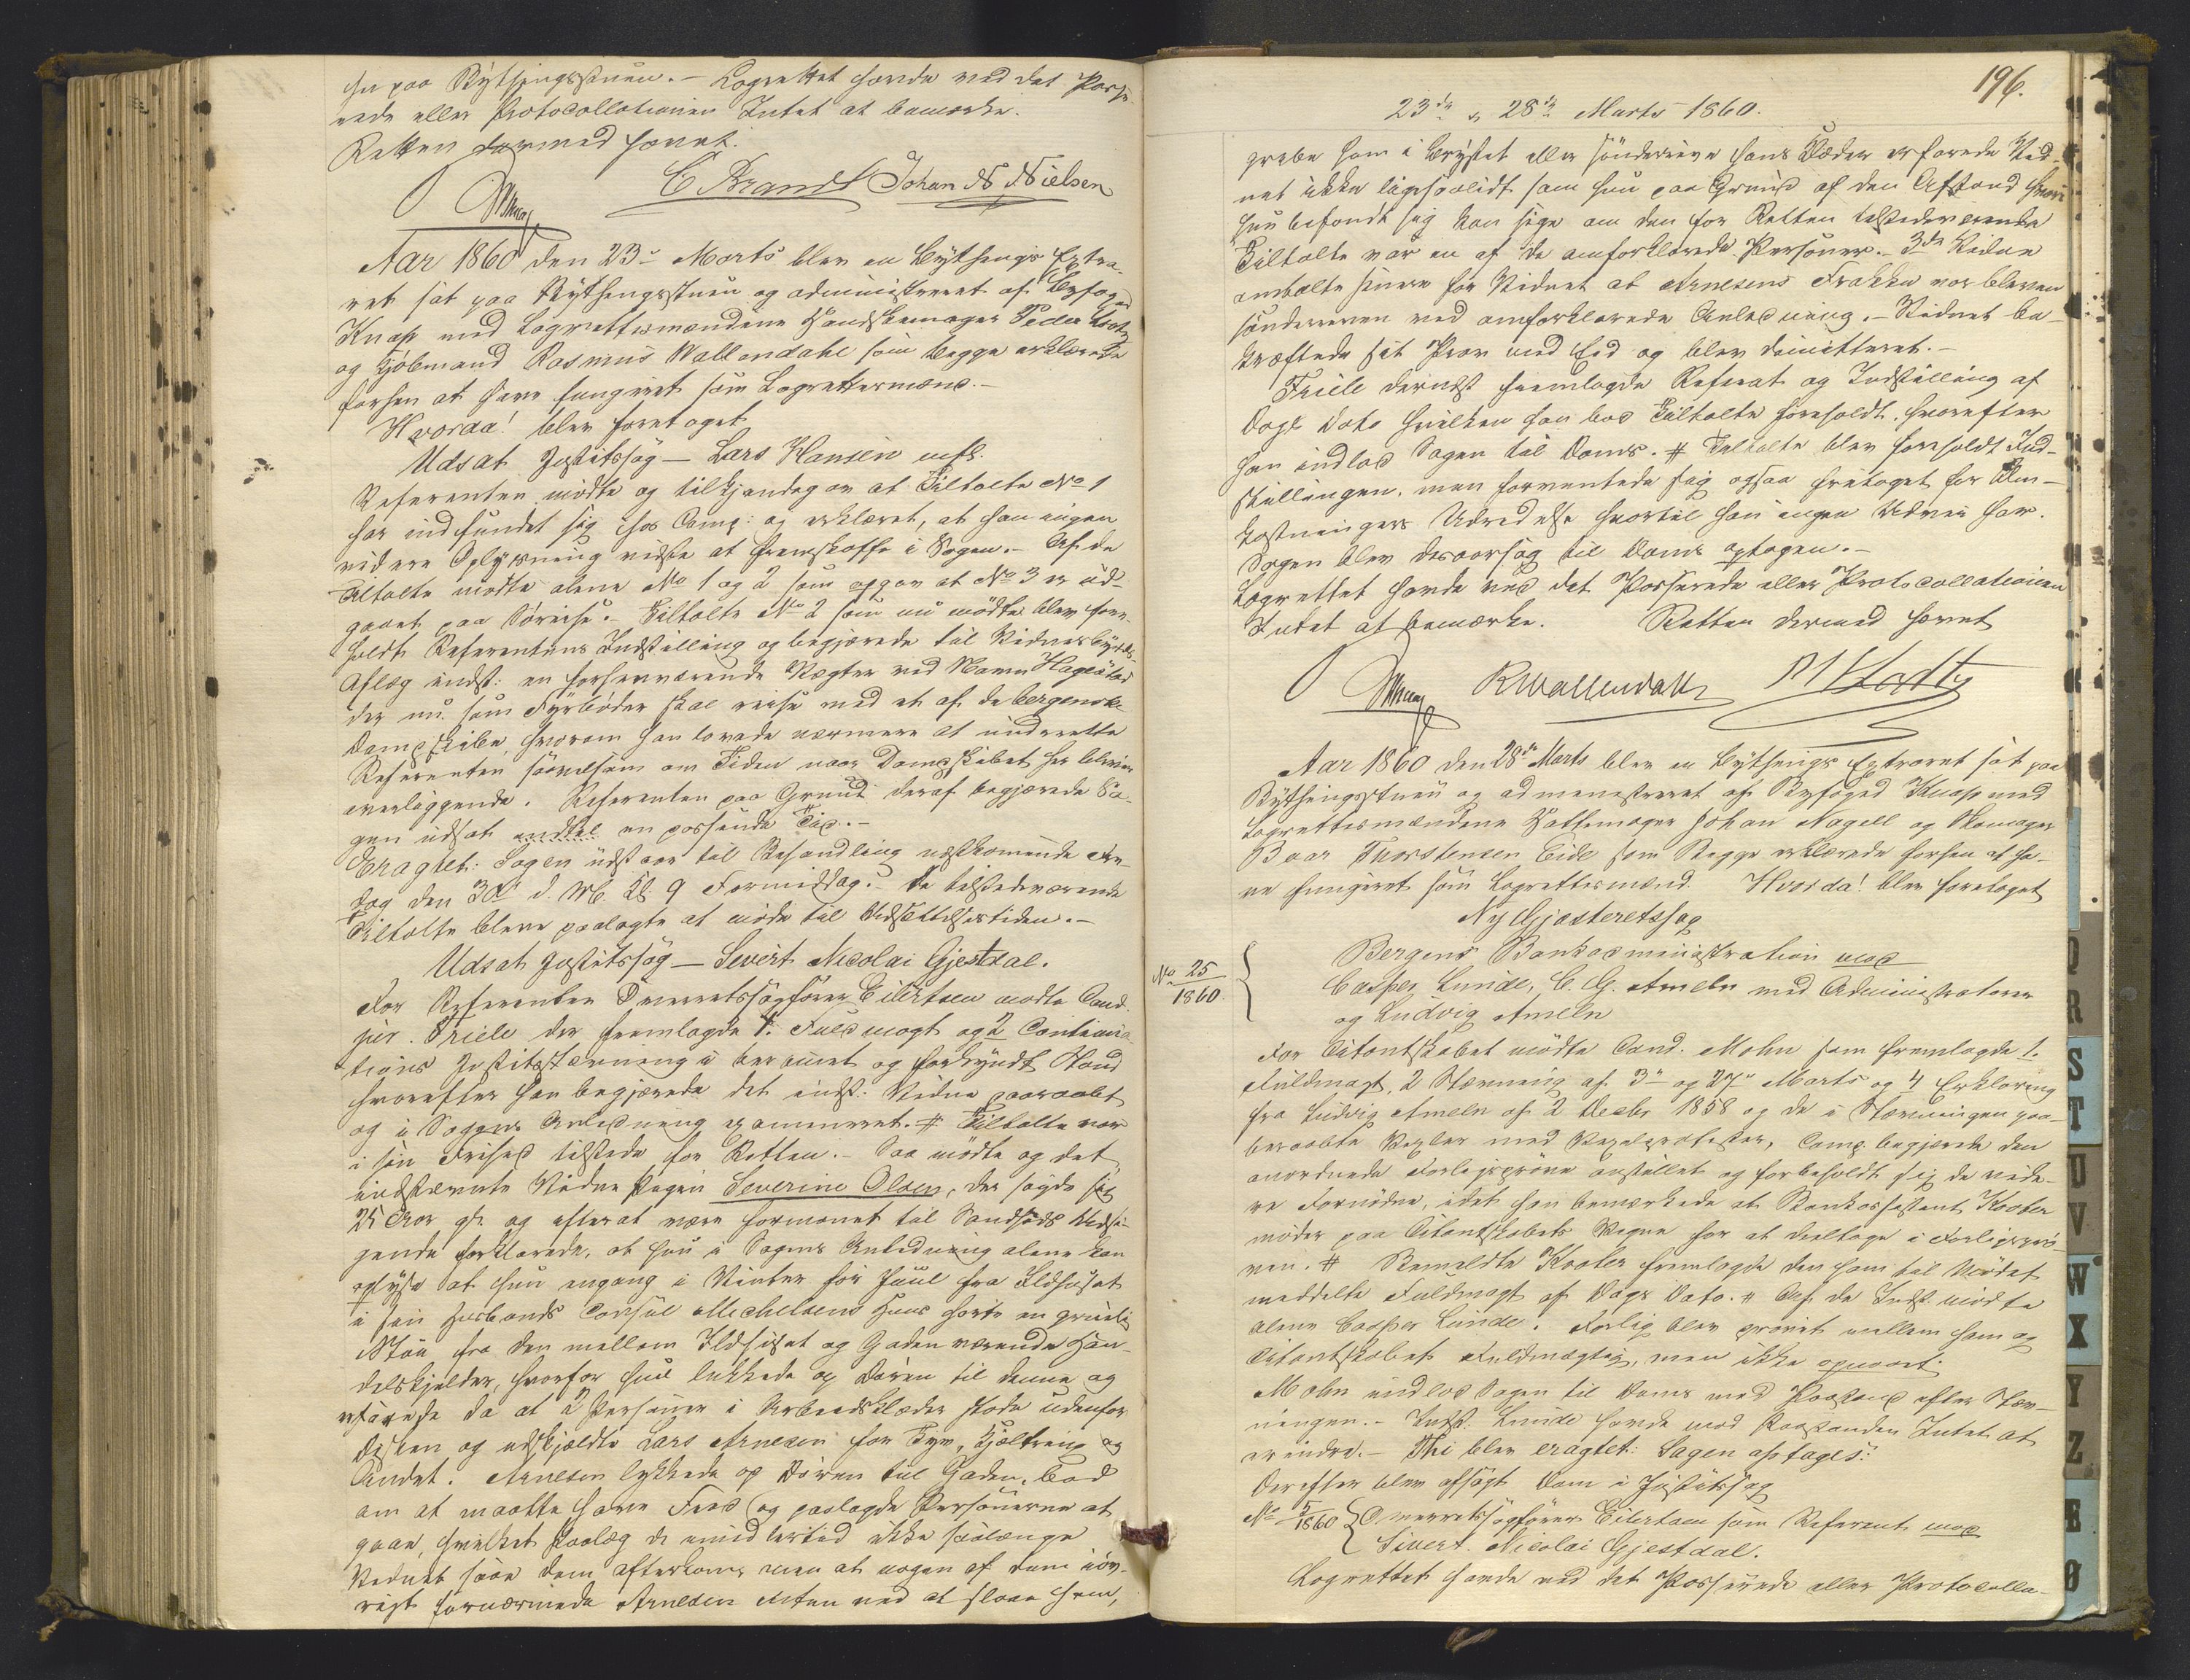 her paa Bythingsstuen. – Lagrettet havde ved det Passe-
rede eller Protocollationen Intet at bemærke.
Retten dermed hævet.
Knap C Brandt Johan N Nielsen
Aar 1860 den 23de Marts blev en Bythings Extra-
ret sat paa Bythingsstuen og administreret af Byfoged
Knap med Lagrettesmændene Handskemager Peder
og Kjøbmand Rasmus Wallendahl som begge erklærede
forhen at have fungeret som Lagrettesmænd. –
Hvorda! blev foretaget
Udsat Justitssag – Lars Hansen mfl.
Referenten mødte og tilkjendegav at Tiltalte No 1
har indfundet sig hos Comp: og erklæret, at han ingen
videre Oplysning vidste at fremskaffe i Sagen. – Af de
Tiltalte mødte alene No 1 og 2 som opgav at No 3 er ud-
gaaet paa Søreise. – Tiltalte No 2 som nu mødte blev fore-
holdt Referentens Indstilling og begjærede til Vidnesbyrds
Aflæg indst: en forhenværende Vægter ved Navn Hagestad
der nu som Fyrbøder skal reise med et af de bergenske
Dampskibe, hvorom han lovede nærmere at underrette
Referenten saavelsom om Tiden naar Dampskibet her bliver
overliggende. Referenten paa Grund deraf begjærede Sa-
gen udsat indtil en passende Tid. –
Eragtet: Sagen udstaar til Behandling næstkommende
dag den 30te d. M. Kl. 9 Formiddag. – De tilstedeværende
Tiltalte bleve paalagte at møde til Udsættelsestiden. –
Udsat Justitssag – Sivert Nicolai Gjestdal.
For Referenten Overretssagfører Eilertsen mødte Cand.
jur. Friele der fremlagde 1. Fuldmagt og 2 Continua-
tions Justitsstævning i beramet og forkyndt Stand
hvorefter han begjærede det indst: Vidne paaraabt
og i Sagens Anledning examineret. # Tiltalte var
i sin Frihed tilstede for Retten. – Saa mødte og det
indstævnte Vidne Pigen Severine Olsen, der sagde sig
25 Aar gl. og efterat være formanet til Sandheds Udsi-
gende forklarede, at hun i Sagens Anledning alene kan
oplyse at hun engang i Vinter før Juul fra Ildhuset
i sin Husbonds Consul Michelsens Huus hørte en
Støi fra den mellem Ildhuset og Gaden værende Han-
delskjelder, hvorfor hun lukkede op Døren til denne og
erfarede da at 2 Personer i Arbeidsklæder stode udenfor
Disken og udskjældte Lars Arnesen for Tyv, Kjæltring og
Andet. Arnesen lukkede op Døren til Gaden, bad
om at maatte have Fred og paalagde Personerne at
gaae, hvilket Paalæg de imidlertid ikke saalænge
Vidnet saae dem efterkom, men at nogen af dem iøv-
rigt fornærmede Arnesen enten ved at slaae ham,
196.
23de & 28de Marts 1860.
gribe ham i Brystet eller sønderrive hans Klæder erfarede Vid-
net ikke ligesaalidt som hun paa Grund af den Afstand hvori
hun befandt sig kan sige om den for Retten tilstedeværende
Tiltalte var en af de omforklarede Personer. – 3de Vidne
omtalte senere for Vidnet at Arnesens Frakke var bleven
sønderreven ved omforklarede Anledning. – Vidnet be-
kræftede sit Prov med Eed og blev dimitteret. –
Friele dernæst fremlagde Referat og Indstilling af
Dags Dato hvilken han bad Tiltalte foreholdt, hvorefter
han indlod Sagen til Doms. # Tiltalte blev foreholdt Ind-
stillingen, men forventede sig ogsaa fritaget for Om-
kostningers Udredelse hvortil han ingen Udvei har.
Sagen blev desaarsag til Doms optagen. –
Lagrettet havde ved det Passerede eller Protocollationen
Intet at bemærke. Retten dermed hævet
Knap RWallendahl
Aar 1860 den 28de Marts blev en Bythings Extraret sat paa
Bythingsstuen og administreret af Byfoged Knap med
Lagrettesmændene Hattemager Johan Nagell og Skomager
Baar Thorstensen Eide som Begge erklærede forhen at ha-
ve fungeret som Lagrettesmænd. Hvorda! blev foretaget
Ny Gjesteretssag
Bergens Bankadministration mod
No 25/1860
Casper Lunde, C. G. Ameln med Administratorer
og Ludvig Ameln
For Citantskabet mødte Cand. Mohn som fremlagde 1.
Fuldmagt, 2 Stævning af 3de og 27de Marts og 4 Erklæring
fra Ludvig Ameln af 2 Decbr 1858 og de i Stævningen paa-
beraabte Vexler med Vexelprotester, Comp. begjærede den
anordnede Forligsprøve anstillet og forbeholdt sig de vide-
re Fornødne, idet han bemærkede at Bankassistent Koster
møder paa Citantskabets Vegne for at deeltage i Forligsprø-
ven. # Bemeldte Koster fremlagde den ham til Mødet
meddelte Fuldmagt af Dags Dato. # Af de Indst. mødte
alene Casper Lunde. Forlig blev prøvet mellem ham og
Citantskabets Fuldmægtig, men ikke opnaaet.
Mohn indlod Sagen til Doms med Paastand efter Stæv-
ningen. – Indst. Lunde havde mod Paastanden Intet at
erindre. – Thi blev eragtet: Sagen optages.
Derefter blev afsagt Dom i Justitssag
No 5/1860 Overretssagfører Eilertsen som Referent mod
Sivert Nicolai Gjestdal.
Lagrettet havde ved det Passerede eller Protocolla-
Q
R
S
T
U
V
W
X
Y
Z
Æ
Ø